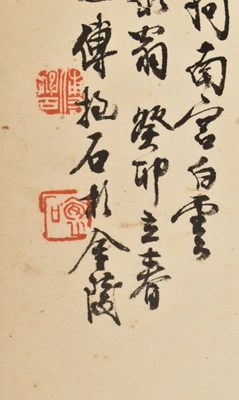 南宫白雲
翁癸卯立春
傅抱石於金陵